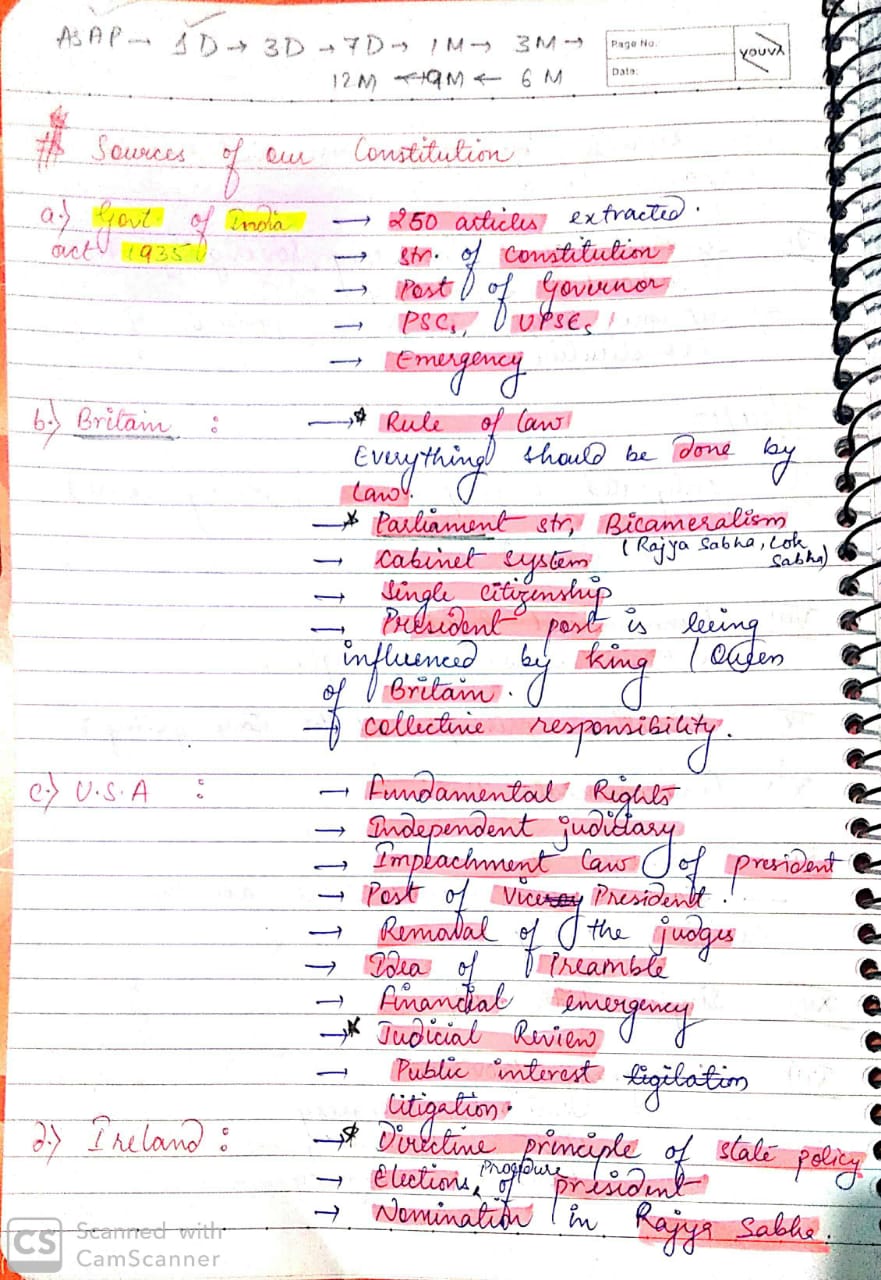 ASAP → 1D → 3D → 7D → 1M → 3M →
12M ← 9M ← 6M
Page No.
Date:
YOUVA
# Sources of our Constitution
a.) Govt. of India act 1935 → 250 articles extracted.
→ Str. of constitution
→ Post of Governor
→ PSCs, UPSCs
→ Emergency
b.) Britain : → * Rule of law
Everything should be done by
law.
→ * Parliament str, Bicameralism
(Rajya Sabha, Lok Sabha)
→ Cabinet system
→ Single citizenship
→ President post is being
influenced by king / Queen
of Britain.
→ collective responsibility.
c.) U.S.A : → Fundamental Rights
→ Independent judiciary
→ Impeachment law of president
→ Post of Viceroy President.
→ Removal of the judges
→ Idea of Preamble
→ Financial emergency
→ * Judicial Review
→ Public interest ligilation
litigation.
d.) Ireland : → * Directive principle of state policy
→ Elections Procedure of president
→ Nomination in Rajya Sabha.
CS Scanned with
CamScanner